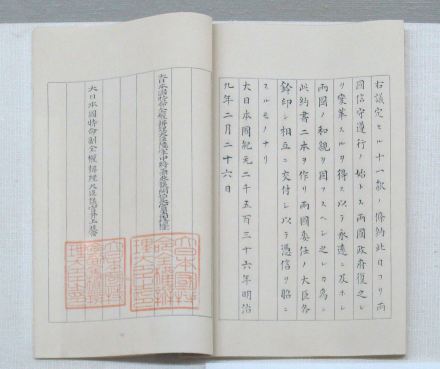 右議定セル十一款ノ條約此日ヨリ兩
國信守遵行ノ始トス兩國政府復之レ
ヲ變革スルヿヲ得ス以テ永遠ニ及ホシ
兩國ノ和親ヲ固フスヘシ之レカ為ニ
此約書二本ヲ作リ兩國委任ノ大臣各
鈐印シ相互ニ交付シ以テ憑信ヲ昭ニ
スルモノナリ
大日本國紀元二千五百三十六年明治
九年二月二十六日
大日本國特命全權辨理大臣陸軍中將兼參議開拓長官黑田清隆
大日本國特命副全權辨理大臣議官井上馨